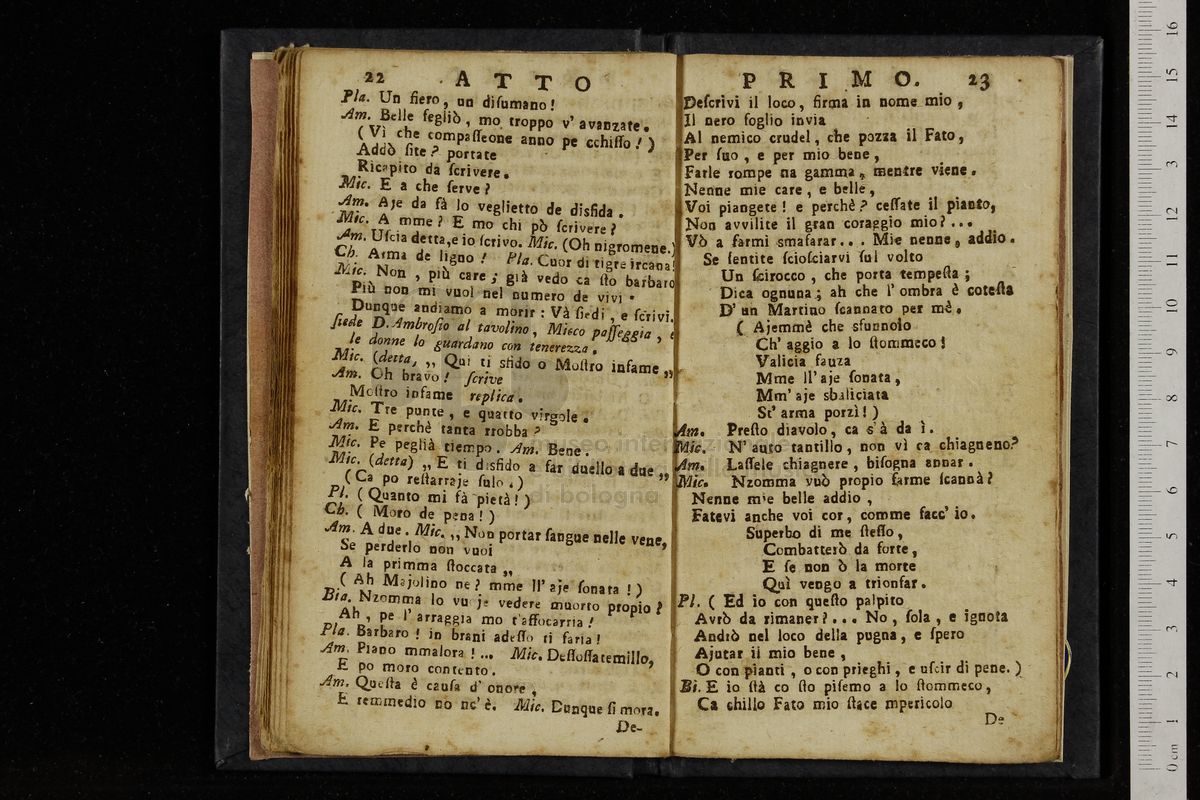 22 ATTO
Pla. Un fiero, un diſumano!
Am. Belle ſegliò, mo troppo v' avanzate.
(Vì che compaſſeone anno pe cchiſſo!)
Addò ſite? portate
Ricapito da ſcrivere.
Mic. E a che ſerve?
Am. Aje da fà lo veglietto de disfida.
Mic. A mme? E mo chi pò ſcrivere?
Am. Uſcia detta, e io ſcrivo. Mic. (Oh nigromene.)
Ch. Arma de ligno! Pla. Cuor di tigre ircana!
Mic. Non, più care; già vedo ca ſto barbaro
Più non mi vuol nel numero de vivi.
Dunque andiamo a morir: Và ſiedi, e ſcrivi.
ſiede D. Ambroſio al tavolino, Mieco paſſeggia, e
le donne lo guardano con tenerezza.
Mic. (detta, „ Qui ti sfido o Moſtro infame „
Am. Oh bravo! ſcrive
Moſtro infame replica.
Mic. Tre punte, e quatto virgole.
Am. E perchè tanta rrobba?
Mic. Pe peglià tiempo. Am. Bene.
Mic. (detta) „ E ti disfido a far duello a due „
(Ca po reſtarraje ſulo.)
Pl. (Quanto mi fà pietà!)
Ch. (Moro de pena!)
Am. A due. Mic. „ Non portar ſangue nelle vene,
Se perderlo non vuoi
A la primma ſtoccata „
(Ah Majolino ne? mme ll' aje ſonata!)
Bia. Nzomma lo vu je vedere muorto propio?
Ah, pe l' arraggia mo t'affocarria!
Pla. Barbaro! in brani adeſſo ti faria!
Am. Piano mmalora!... Mic. Deſſoſſatemillo,
E po moro contento.
Am. Queſta è cauſa d' onore,
E remmedio no nc' è. Mic. Dunque ſi mora.
De-
PRIMO. 23
Deſcrivi il loco, firma in nome mio,
Il nero foglio invia
Al nemico crudel, che pozza il Fato,
Per ſuo, e per mio bene,
Farle rompe na gamma, mentre viene.
Nenne mie care, e belle,
Voi piangete! e perchè? ceſſate il pianto,
Non avvilite il gran coraggio mio?...
Vò a farmi smafarar... Mie nenne, addio.
Se ſentite ſcioſciarvi ſul volto
Un ſcirocco, che porta tempeſta;
Dica ognuna; ah che l' ombra è coteſta
D' un Martino ſcannato per mè.
(Ajemmè che sfunnolo
Ch' aggio a lo ſtommeco!
Valicia fauza
Mme ll' aje ſonata,
Mm' aje sbaliciata
St' arma porzì!)
Am. Preſto diavolo, ca s'à da ì.
Mic. N' auto tantillo, non vì ca chiagneno?
Am. Laſſele chiagnere, biſogna annar.
Mic. Nzomma vuò propio farme ſcannà?
Nenne mie belle addio,
Fatevi anche voi cor, comme facc' io.
Superbo di me ſteſſo,
Combatterò da forte,
E ſe non ò la morte
Quì vengo a trionfar.
Pl. (Ed io con queſto palpito
Avrò da rimaner?... No, ſola, e ignota
Andrò nel loco della pugna, e ſpero
Ajutar il mio bene,
O con pianti, o con prieghi, e uſcir di pene.)
Bi. E io ſtà co ſto piſemo a lo ſtommeco,
Ca chillo Fato mio ſtace mpericolo
De
museo internazionale
di bologna
0 cm 1 2 3 4 5 6 7 8 9 10 11 12 13 14 15 16